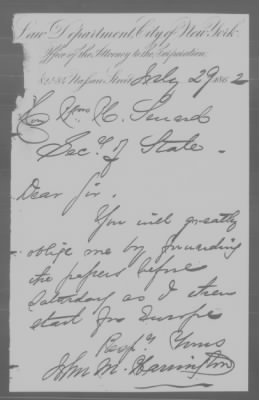 Law Department, City of New York.
Office of the Attorney to the Corporation
82 & 84 Nassau Street, July 29 1862
Hon Wm H. Seward
Secy of State.
Dear Sir.
You will greatly
oblige me by forwarding
the papers before
Saturday as I then
start for Europe
Respy Yours
John M. Harrington